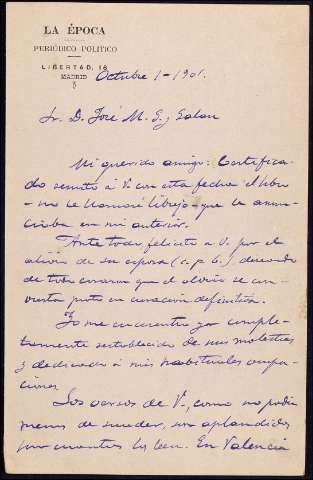 LA ÉPOCA
PERIÓDICO POLITICO
LIBERTAD, 18
MADRID
Octubre 1-1901.
Sr. D. José M. G. y Galan
Mi querido amigo: Certifica-
do remito á V. con esta fecha el libro
- no le llamaré librejo - que le anun-
ciaba en mi anterior.
Ante todo felicito a V. por el
alivio de su esposa (c. p. b.), deseando
de todo corazon que el alivio se con-
vierta pronto en curación definitiva.
Yo me encuentro ya comple-
tamente restablecido de mis molestias
y dedicado á mis habituales ocupa-
ciones.
Los versos de V., como no podia
menos de suceder, son aplaudidos
por cuantos los leen. En Valencia